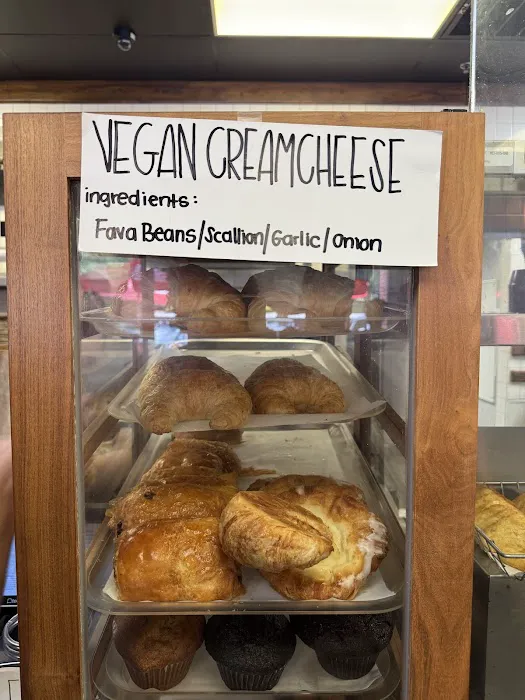 VEGAN CREAMCHEESE
ingredients:
Fava Beans/Scallion/Garlic/Onion